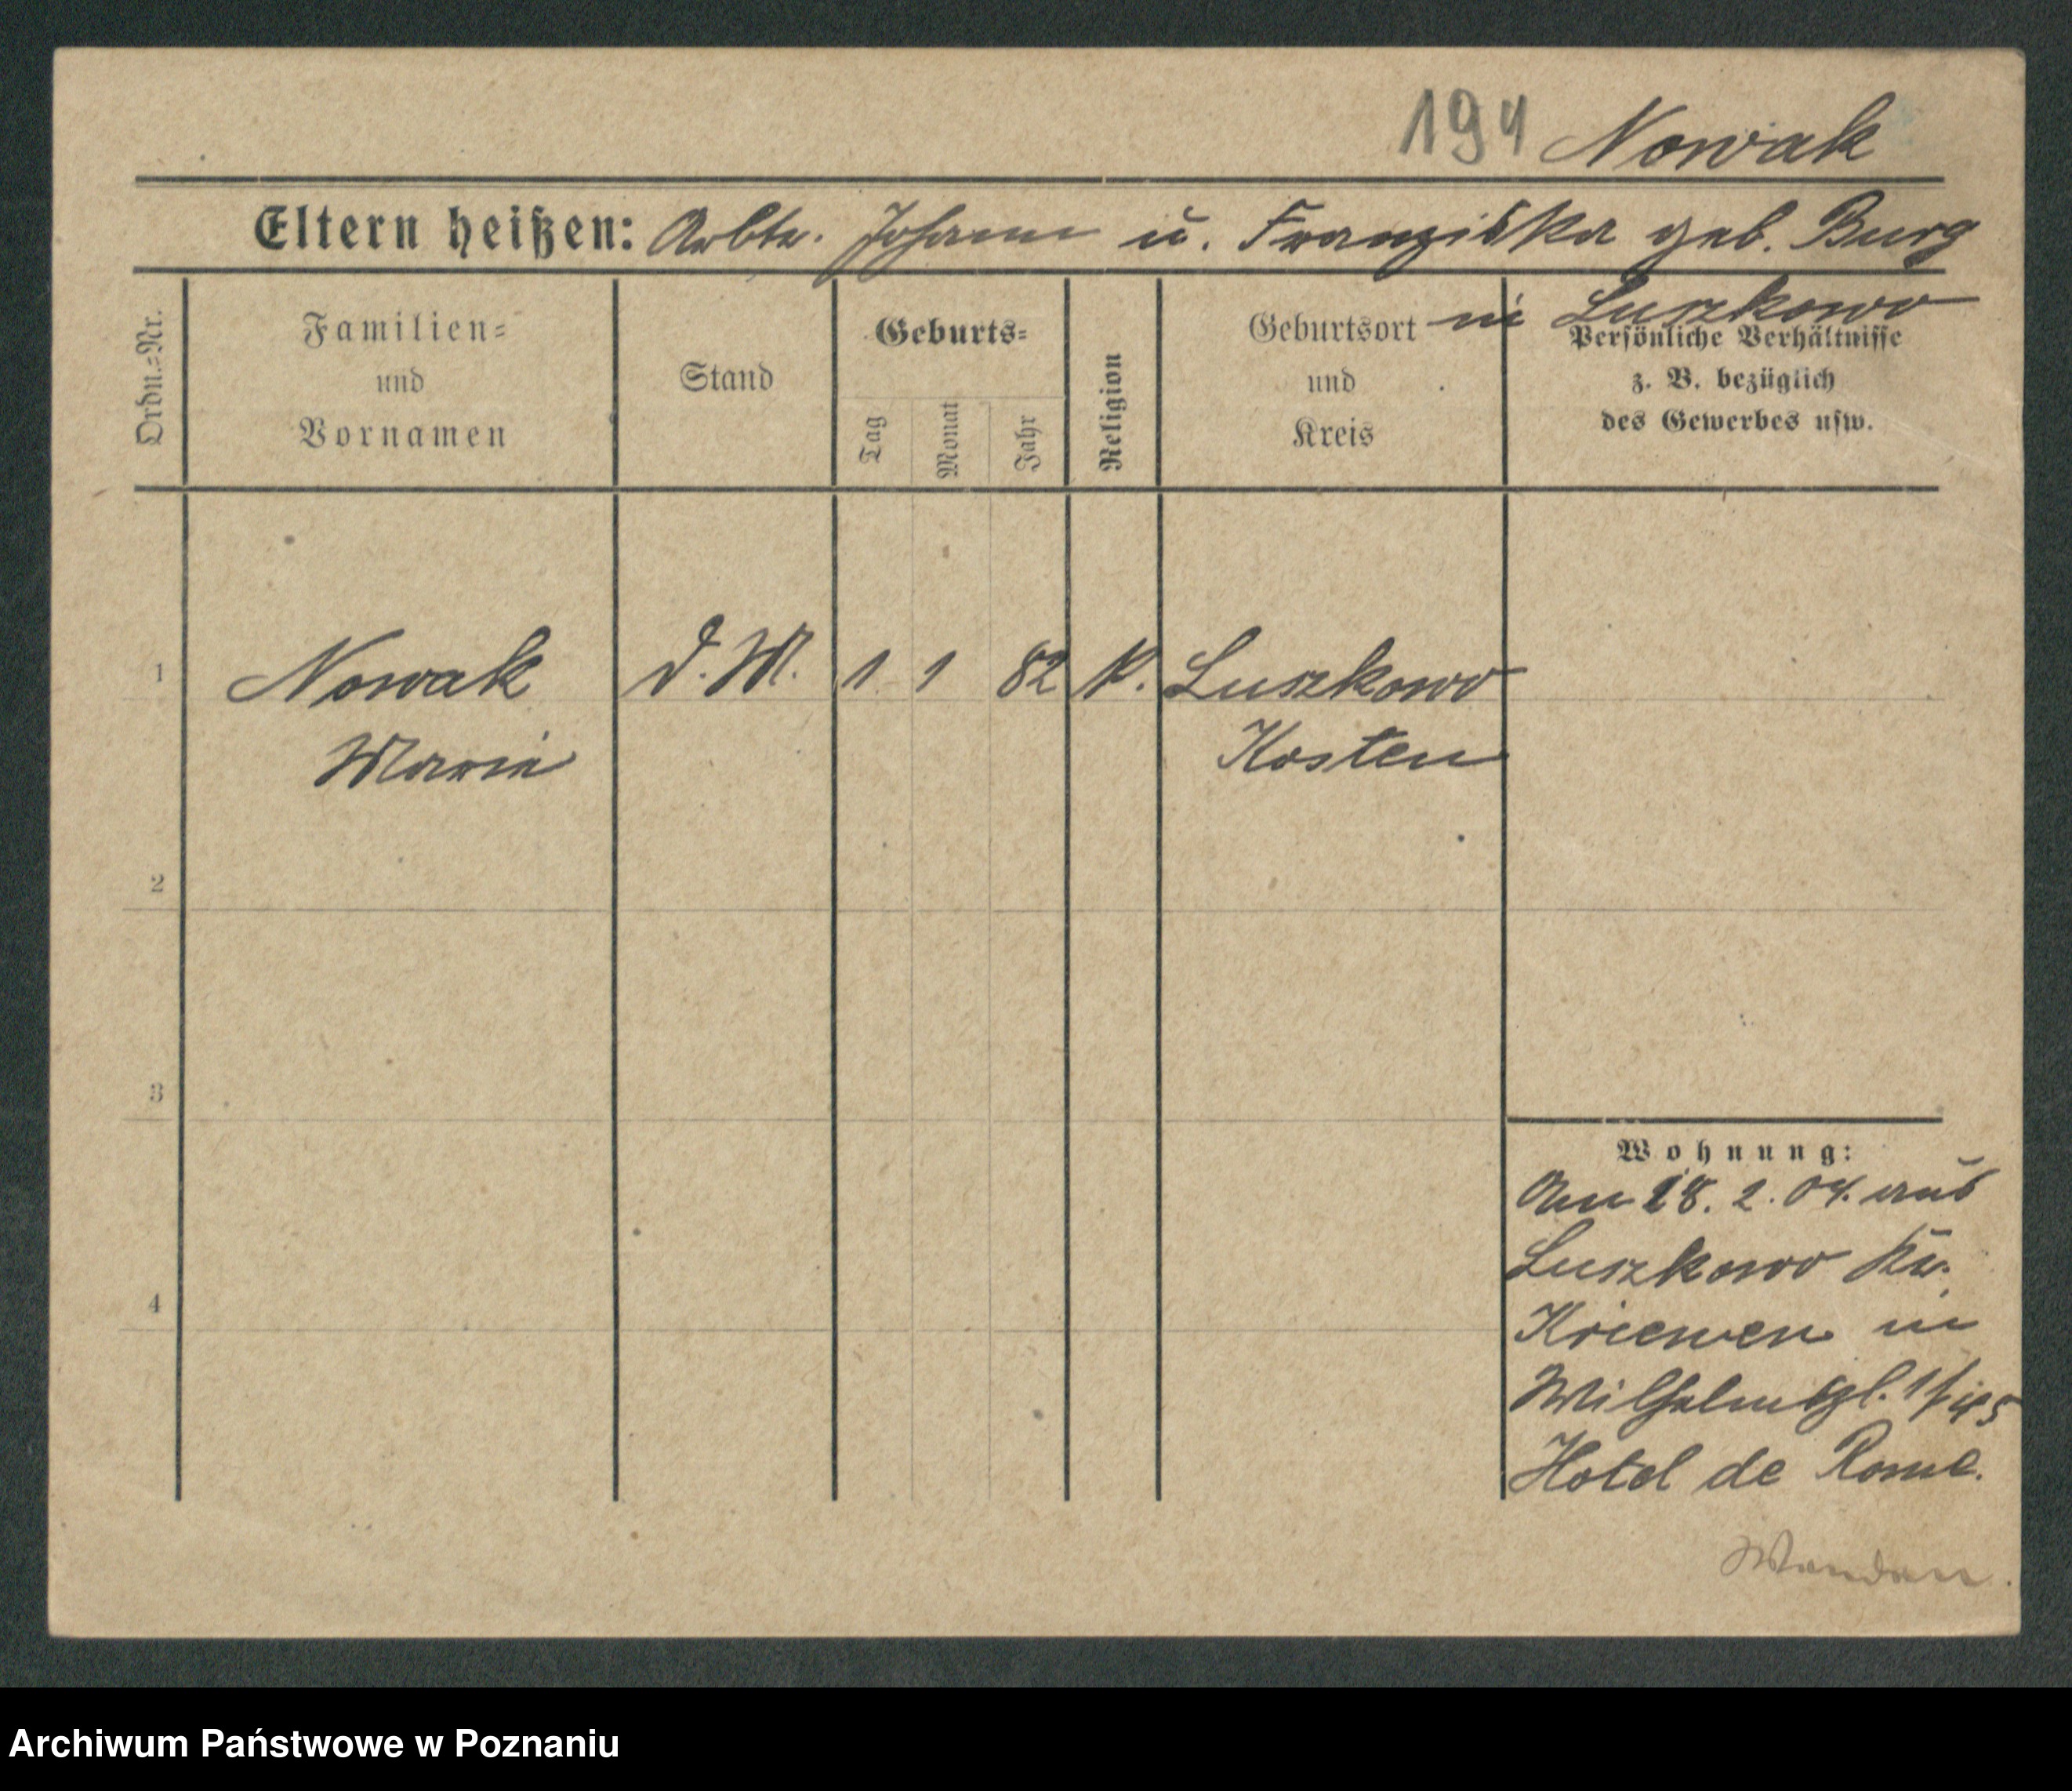 194 Nowak
Eltern heißen: Arbtr. Johann u. Franziska geb. Burg
in Luszkowo
Ordn.=Nr.
Familien=
und
Vornamen
Stand
Geburts=
Tag
Monat
Jahr
Religion
Geburtsort
und
Kreis
Persönliche Verhältnisse
z. B. bezüglich
des Gewerbes usw.
1 Nowak D.M. 1 1 82 K. Luszkowo
Marie Kosten
2
3
4
Wohnung:
Am 18. 2. 04. aus
Luszkowo Kr.
Kriewen in
Wilhelmspl. 1/
Hotel de Rome.
Archiwum Państwowe w Poznaniu